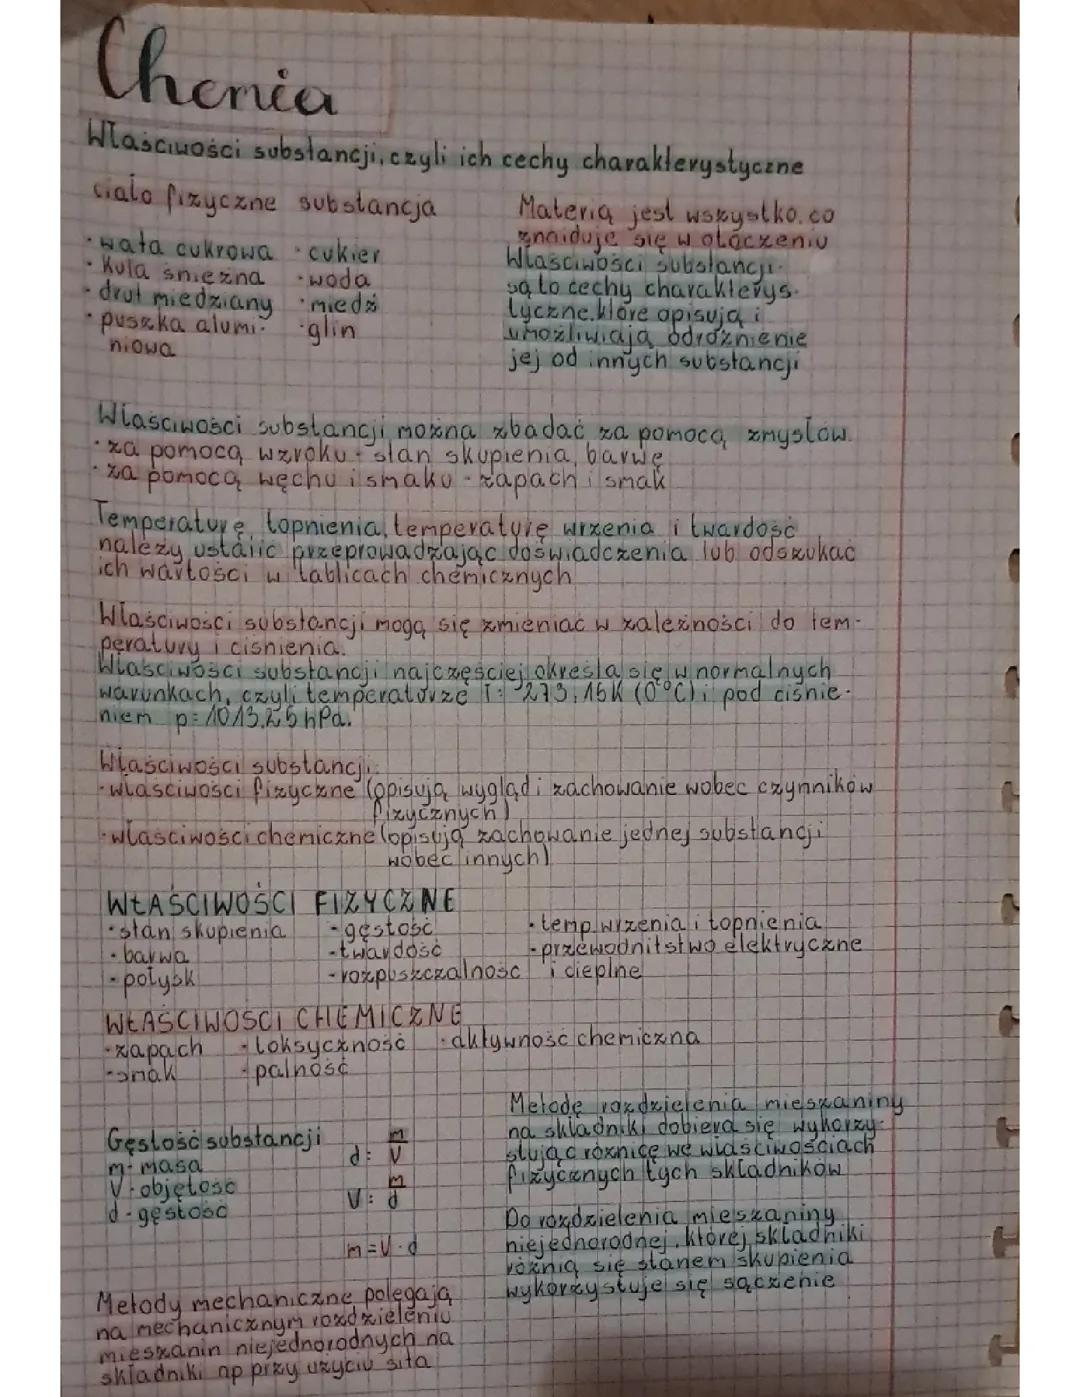 Chemia
Właściwości substancji, czyli ich cechy charakterystyczne
ciało fizyczne substancja
· wata cukrowa · cukier
· kula śnieżna · woda
· drut miedziany · miedź
· puszka alumi- · glin
niowa
Materią jest wszystko, co
znajduje się w otoczeniu
Właściwości substancji
są to cechy charakterys-
tyczne, które opisują i
umożliwiają odróżnienie
jej od innych substancji
Właściwości substancji można zbadać za pomocą zmysłów.
· za pomocą wzroku - stan skupienia, barwę
· za pomocą węchu i smaku - zapach i smak
Temperaturę topnienia, temperaturę wrzenia i twardość
należy ustalić przeprowadzając doświadczenia lub odszukać
ich wartości w tablicach chemicznych
Właściwości substancji mogą się zmieniać w zależności do tem-
peratury i ciśnienia.
Właściwości substancji najczęściej określa się w normalnych
warunkach, czyli temperaturze T= 273,15K (0°C) i pod ciśnie-
niem p= 1013,25 hPa.
Właściwości substancji:
- właściwości fizyczne (opisują wygląd i zachowanie wobec czynników
fizycznych)
- właściwości chemiczne (opisują zachowanie jednej substancji
wobec innych)
WŁAŚCIWOŚCI FIZYCZNE
· stan skupienia - gęstość · temp. wrzenia i topnienia
- barwa - twardość - przewodnitstwo elektryczne
- połysk - rozpuszczalność i cieplne
WŁAŚCIWOŚCI CHEMICZNE
- zapach - toksyczność · aktywność chemiczna
- smak - palność
Gęstość substancji
m - masa
V - objętość
d - gęstość
d = m/V
V = m/d
m = V · d
Metody mechaniczne polegają
na mechanicznym rozdzieleniu
mieszanin niejednorodnych na
składniki np przy użyciu sita
Metodę rozdzielenia mieszaniny
na składniki dobiera się wykorzy-
stując różnicę we właściwościach
fizycznych tych składników
Do rozdzielenia mieszaniny
niejednorodnej, której składniki
różnią się stanem skupienia
wykorzystuje się sączenie